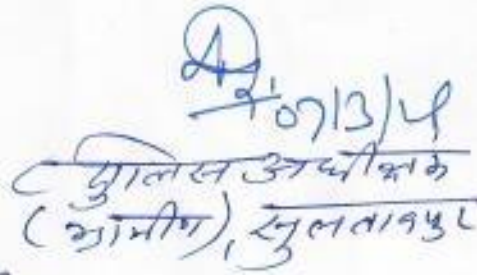 07/3/14
पुलिस अधीक्षक
(ग्रामीण), सुलतानपुर